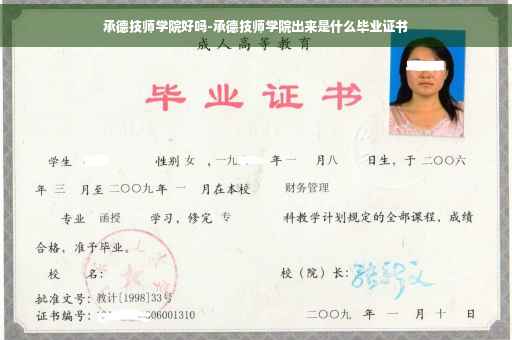 承德技师学院好吗-承德技师学院出来是什么毕业证书
成人高等教育
毕业证书
学生 性别 女 ,一九 年 一 月八 日生，于 二〇〇六
年 三 月至 二〇〇九 年 一 月在本校 财务管理
专业 函授 学习，修完 专 科教学计划规定的全部课程，成绩
合格，准予毕业。
校 名： 校（院）长：
批准文号：教计[1998]33号
证书编号： 06001310 二〇〇九 年 一 月 十 日